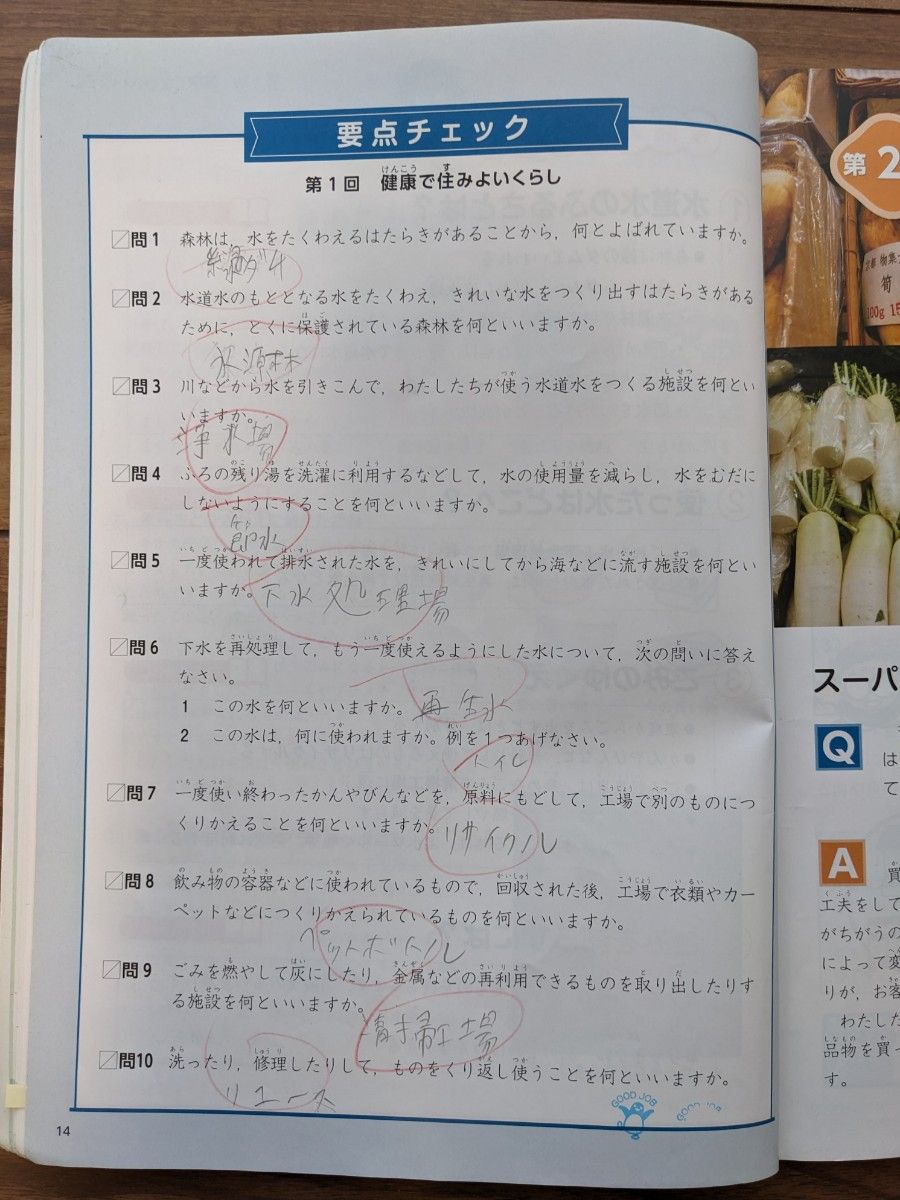 要点チェック
第1回 健康で住みよいくらし
問1 森林は，水をたくわえるはたらきがあることから，何とよばれていますか。
緑のダム
問2 水道水のもととなる水をたくわえ，きれいな水をつくり出すはたらきがある
ために，とくに保護されている森林を何といいますか。
水源林
問3 川などから水を引きこんで，わたしたちが使う水道水をつくる施設を何とい
いますか。
浄水場
問4 ふろの残り湯を洗濯に利用するなどして，水の使用量を減らし，水をむだに
しないようにすることを何といいますか。
節水
問5 一度使われて排水された水を，きれいにしてから海などに流す施設を何とい
いますか。
下水処理場
問6 下水を再処理して，もう一度使えるようにした水について，次の問いに答え
なさい。
1 この水を何といいますか。 再生水
2 この水は，何に使われますか。例を1つあげなさい。
トイレ
問7 一度使い終わったかんやびんなどを，原料にもどして，工場で別のものにつ
くりかえることを何といいますか。
リサイクル
問8 飲み物の容器などに使われているもので，回収された後，工場で衣類やカー
ペットなどにつくりかえられているものを何といいますか。
ペットボトル
問9 ごみを燃やして灰にしたり，金属などの再利用できるものを取り出したりす
る施設を何といいますか。
清掃工場
問10 洗ったり，修理したりして，ものをくり返し使うことを何といいますか。
リユース
GOOD JOB
GOOD JOB
14
第2
筍
100g
スーパ
Q
は
て
A
買
工夫をして
がちがうの
によって変
りが，お客
わたした
品物を買っ
す。